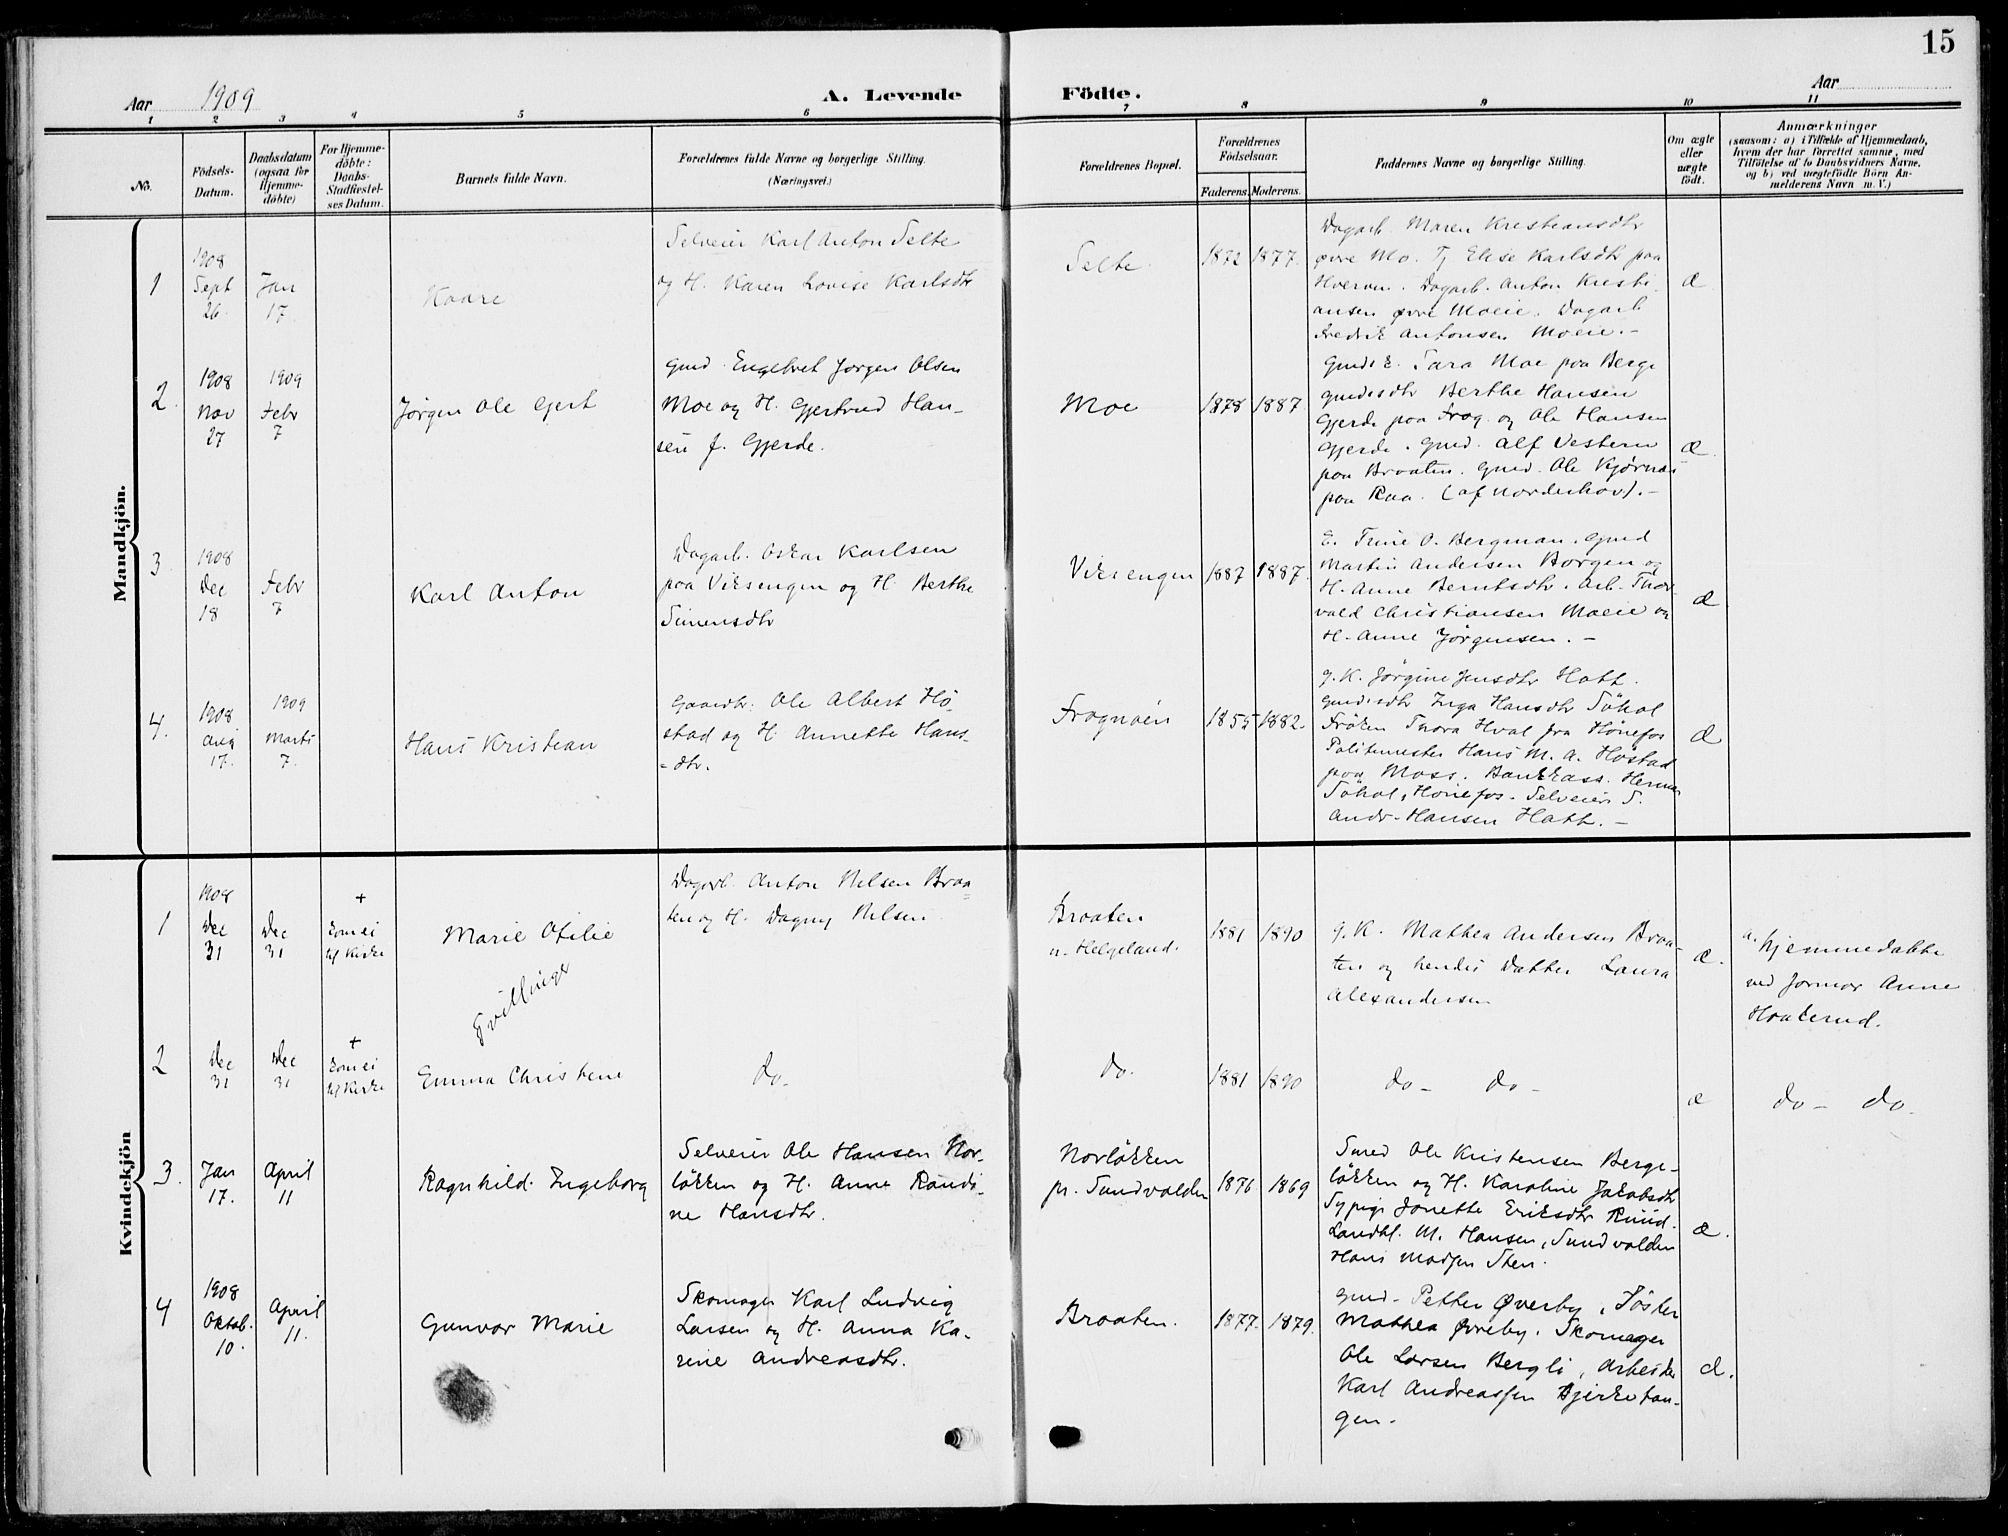 15
Aar 1909
A. Levende Födte.
Aar
1 2 3 4 5 6 7 8 9 10 11
No.
Födsels-
Datum.
Daabsdatum
(ogsaa for
Hjemme-
döbte)
For Hjemme-
döbte:
Daabs-
Stadfæstel-
ses Datum.
Barnets fulde Navn.
Forældrenes fulde Navne og borgerlige Stilling.
(Næringsvei.)
Forældrenes Bopæl.
Forældrenes
Födselsaar.
Faderens. Moderens.
Faddernes Navne og borgerlige Stilling.
Om ægte
eller
uægte
födt.
Anmærkninger
(saasom: a) i Tilfælde af Hjemmedaab,
hvem der har forrettet samme, med
Tilföielse af to Daabsvidners Navne,
og b) ved uægtefödte Börn An-
melderens Navn m. V.)
Mandkjön.
1
1908
Sept
26.
Jan
17.
Kaare
Selveier Karl Anton Selte
og H. Karen Lovise Karlsdtr
Selte.
1872 1877.
Dagarb. Maren Kristiansdtr
øvre Mo. Tj Elise Karlsdtr paa
Hverven. Dagarb. Anton Kristi-
ansen øvre Moeie. Dagarb
Fredrik Antonsen Moeie.-
æ
2.
1908
Nov
27
1909
Febr
7
Jørgen Ole Gjert
Gmd. Engebret Jørgen Olsen
Moe og H. Gjertrud Han-
sen f. Gjerde.
Moe
1878 1887
Gmds E. Sara Moe paa Berge
gmdsdtr Berthe Hansen
Gjerde paa Frog. og Ole Hansen
Gjerde. Gmd. Alf Vestern
paa Braaten. Gmd. Ole Kjørnæs
paa Raa. (af Norderhov).-
æ.
3
1908
Dec
18
Febr
7
Karl Anton
Dagarb. Oskar Karlsen
paa Viksengen og H. Berthe
Simensdtr
Viksengen
1887 1887.
E. Trine O. Bergman. Gmd
Martin Andersen Borgen og
H. Anne Berntsdtr. Arb. Thor-
vald Christiansen Moeie og
H. Anne Jørgensen.-
æ
4.
1908
Aug
17.
1909
Marts
7.
Hans Kristian
Gaardbr. Ole Albert Hö-
stad og H. Annette Hans-
-dtr.
Frognøen
1855 1882.
g. K. Jørgine Jensdtr Hatt.
Gmdsdtr Inga Hansdtr Søhol
Frøken Thora Hval fra Hønefos
Politimester Hans M. A. Høstad
paa Moss. Bankkass. Herman
Søhol, Hønefos. Selveier S.
Andr. Hansen Hatt.-
æ
Kvindekjön
1
1908
Dec
31
Dec
31
+
kom ei
til Kirke
Marie Otilie
Tvillinger
Dagarb. Anton Nilsen Braa-
ten og H. Dagny Nilsen
Braaten
u. Helgeland.
1881 1890
g. K. Mathea Andersen Braa-
ten og hendes Datter Laura
Alexandersen
æ.
a. hjemmedøbte
ved Jormor Anne
Haakerud.
2
Dec
31
Dec
31
+
kom ei
til Kirke
Emma Christine
do.
do.
1881 1890
do- do-
æ
do- do.
3.
Jan
17.
April
11
Ragnhild Ingeborg
Selveier Ole Hansen Nor-
løkken og H. Anne Randi-
ne Hansdtr.
Norløkken
pr. Sundvolden
1876 1869
Smed Ole Kristensen Berge-
løkken og H. Karoline Jakobsdtr
Sypige Jonette Eriksdtr Ruud.
Landhl. M. Hansen, Sundvolden
Hans Madsen Sten.
æ.
4
1908
Oktob.
10.
April
11.
Gunvor Marie
Skomager Karl Ludvig
Larsen og H. Anna Ka-
rine Andreasdtr.
Braaten.
1877. 1879.
Gmd. Petter Øverby, Søster
Mathea Øvreby. Skomager
Ole Larsen Bergli, Arbeider
Karl Andreassen Bjerketan-
gen.
æ.